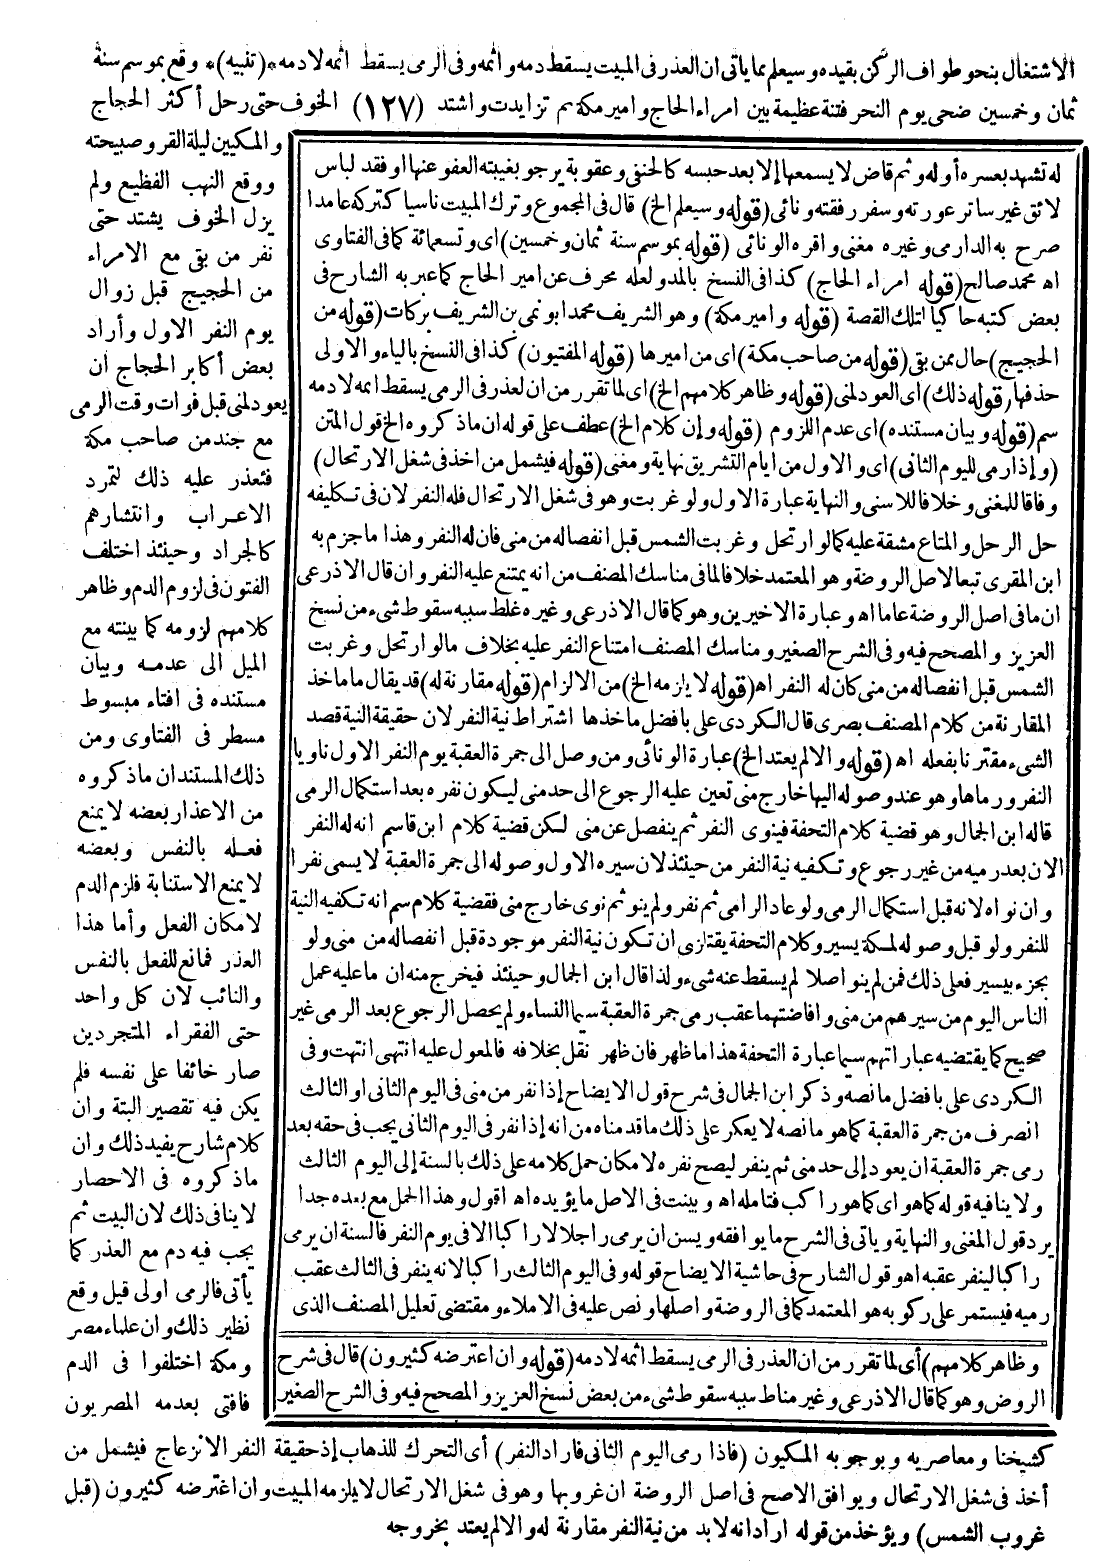 الاشتغال بنحو طواف الركن بقيده وسيعلم مما يأتى ان العذر فى المبيت يسقط دمه واثمه وفى الرمى يسقط اثمه لا دمه *(تنبيه)* وقع بموسم سنة
ثمان وخمسين ضحى يوم النحر فتنة عظيمة بين امراء الحاج وامير مكة ثم تزايدت واشتد (١٢٧) الخوف حتى رحل أكثر الحجاج
والمكيين ليلة القر وصبيحته
ووقع النهب الفظيع ولم
يزل الخوف يشتد حتى
نفر من بقى مع الامراء
من الحجيج قبل زوال
يوم النفر الاول وأراد
بعض أكابر الحجاج ان
يعود لمنى قبل فوات وقت الرمى
مع جند من صاحب مكة
فتعذر عليه ذلك لتمرد
الاعراب وانتشارهم
كالجراد وحينئذ اختلف
المفتون فى لزوم الدم وظاهر
كلامهم لزومه كما بينته مع
الميل الى عدمه وبيان
مستنده فى افتاء مبسوط
مسطر فى الفتاوى ومن
ذلك المستند ان ما ذكروه
من الاعذار بعضه لا يمنع
فعله بالنفس وبعضه
لا يمنع الاستنابة فلزم الدم
لامكان الفعل وأما هذا
العذر فمانع للفعل بالنفس
والنائب لان كل واحد
حتى الفقراء المتجردين
صار خائفا على نفسه فلم
يكن فيه تقصير البتة وان
كلام شارح يفيد ذلك وان
ما ذكروه فى الاحصار
لا ينافى ذلك لان المبيت ثم
يجب فيه دم مع العذر كما
يأتى فالرمى اولى قيل وقع
نظير ذلك وان علماء مصر
ومكة اختلفوا فى الدم
فافتى بعدمه المصريون
كشيخنا ومعاصريه وبوجوبه المكيون (فاذا رمى اليوم الثانى فاراد النفر) أى التحرك للذهاب إذ حقيقة النفر الانزعاج فيشمل من
أخذ فى شغل الارتحال ويوافق الاصح فى اصل الروضة ان غروبها وهو فى شغل الارتحال لا يلزمه المبيت وان اعترضه كثيرون (قبل
غروب الشمس) ويؤخذ من قوله اراد انه لا بد من نية النفر مقارنة له والا لم يعتد بخروجه
له تشهد بعسره أو له وثم قاض لا يسمعها إلا بعد حبسه كالحنفى وعقوبة يرجو بغيبته العفو عنها او فقد لباس
لائق غير ساتر عورته وسفر رفقته ونائى (قوله وسيعلم الخ) قال فى المجموع وترك المبيت ناسيا كتركه عامدا
صرح به الدارمى وغيره مغنى واقره الونائى (قوله بموسم سنة ثمان وخمسين) اى وتسعمائة كما فى الفتاوى
اه محمد صالح (قوله امراء الحاج) كذا فى النسخ بالمد ولعله محرف عن امير الحاج كما عبر به الشارح فى
بعض كتبه حاكيا لتلك القصة (قوله وامير مكة) وهو الشريف محمد ابو نمى بن الشريف بركات (قوله من
الحجيج) حال ممن بقى (قوله من صاحب مكة) اى من اميرها (قوله المفتيون) كذا فى النسخ بالياء والاولى
حذفها (قوله ذلك) اى العود لمنى (قوله وظاهر كلامهم الخ) اى لما تقرر من ان لعذر فى الرمى يسقط اثمه لا دمه
سم (قوله وبيان مستنده) اى عدم اللزوم (قوله وإن كلام الخ) عطف على قوله ان ما ذكروه الخ قول المتن
(وإذا رمى لليوم الثانى) اى والاول من ايام التشريق نهاية ومغنى (قوله فيشمل من اخذ فى شغل الارتحال)
وفاقا للمغنى وخلافا للاسنى والنهاية عبارة الاول ولو غربت وهو فى شغل الارتحال فله النفر لان فى تكليفه
حل الرحل والمتاع مشقة عليه كما لو ارتحل وغربت الشمس قبل انفصاله من منى فان له النفر وهذا ما جزم به
ابن المقرى تبعا لاصل الروضة وهو المعتمد خلافا لما فى مناسك المصنف من انه يمتنع عليه النفر وان قال الاذرعى
ان ما فى اصل الروضة غلط اه وعبارة الاخيرين وهو كما قال الاذرعى وغيره غلط سببه سقوط شىء من نسخ
العزيز والمصحح فيه وفى الشرح الصغير ومناسك المصنف امتناع النفر عليه بخلاف ما لو ارتحل وغربت
الشمس قبل انفصاله من منى كان له النفر اه (قوله لا يلزمه الخ) من الالزام (قوله مقارنة له) قد يقال ما ماخذ
المقارنة من كلام المصنف بصرى قال الكردى على بافضل ماخذها اشتراط نية النفر لان حقيقة النية قصد
الشىء مقترنا بفعله اه (قوله والا لم يعتد الخ) عبارة الونائى ومن وصل الى جمرة العقبة يوم النفر الاول ناويا
النفر ورماها وهو عند وصوله اليها خارج منى تعين عليه الرجوع الى حد منى ليكون نفره بعد استكمال الرمى
قاله ابن الجمال وهو قضية كلام التحفة فينوى النفر ثم ينفصل عن منى لكن قضية كلام ابن قاسم انه له النفر
الان بعد رميه من غير رجوع وتكفيه نية النفر من حينئذ لان سيره الاول وصوله الى جمرة العقبة لا يسمى نفرا
وان نواه لانه قبل استكمال الرمى ولو عاد الرامى ثم نفر ولم ينو ثم نوى خارج منى فقضية كلام سم انه تكفيه النية
للنفر ولو قبل وصوله لمكة بيسير وكلام التحفة يقتضى ان تكون نية النفر موجودة قبل انفصاله من منى ولو
بجزء يسير فعلى ذلك فمن لم ينو اصلا لم يسقط عنه شىء ولذا قال ابن الجمال وحينئذ فيخرج منه ان ما عليه عمل
الناس اليوم من سيرهم من منى وافاضتهما عقب رمى جمرة العقبة سيما النساء ولم يحصل الرجوع بعد الرمى غير
صحيح كما يقتضيه عباراتهم سيما عبارة التحفة هذا ما ظهر فان ظهر نقل بخلافه فالمعول عليه انتهى انتهت وفى
الكردى على بافضل ما نصه وذكر ابن الجمال فى شرح قول الايضاح إذا نفر من منى فى اليوم الثانى او الثالث
انصرف من جمرة العقبة كما هو ما نصه لا يعكر على ذلك ما قدمناه من انه إذا نفر فى اليوم الثانى يجب فى حقه بعد
رمى جمرة العقبة ان يعود إلى حد منى ثم ينفر ليصح نفره لامكان حمل كلامه على ذلك بالنسبة إلى اليوم الثالث
ولا ينافيه قوله كما هو اى كما هو راكب فتامله اه وبينت فى الاصل ما يؤيده اه اقول وهذا الحمل مع بعده جدا
يرد قول المغنى والنهاية وياتى فى الشرح ما يوافقه ويسن ان يرمى راجلا لا راكبا الا فى يوم النفر فالسنة ان يرمى
راكبا لينفر عقبه اه وقول الشارح فى حاشية الايضاح قوله وفى اليوم الثالث راكبا لانه ينفر فى الثالث عقب
رميه فيستمر على ركوبه هو المعتمد كما فى الروضة واصلها ونص عليه فى الاملاء ومقتضى تعليل المصنف الذى
وظاهر كلامهم) أى لما تقرر من ان العذر فى الرمى يسقط اثمه لا دمه (قوله وان اعترضه كثيرون) قال فى شرح
الروض وهو كما قال الاذرعى وغير مناط سببه سقوط شىء من بعض نسخ العزيز والمصحح فيه وفى الشرح الصغير